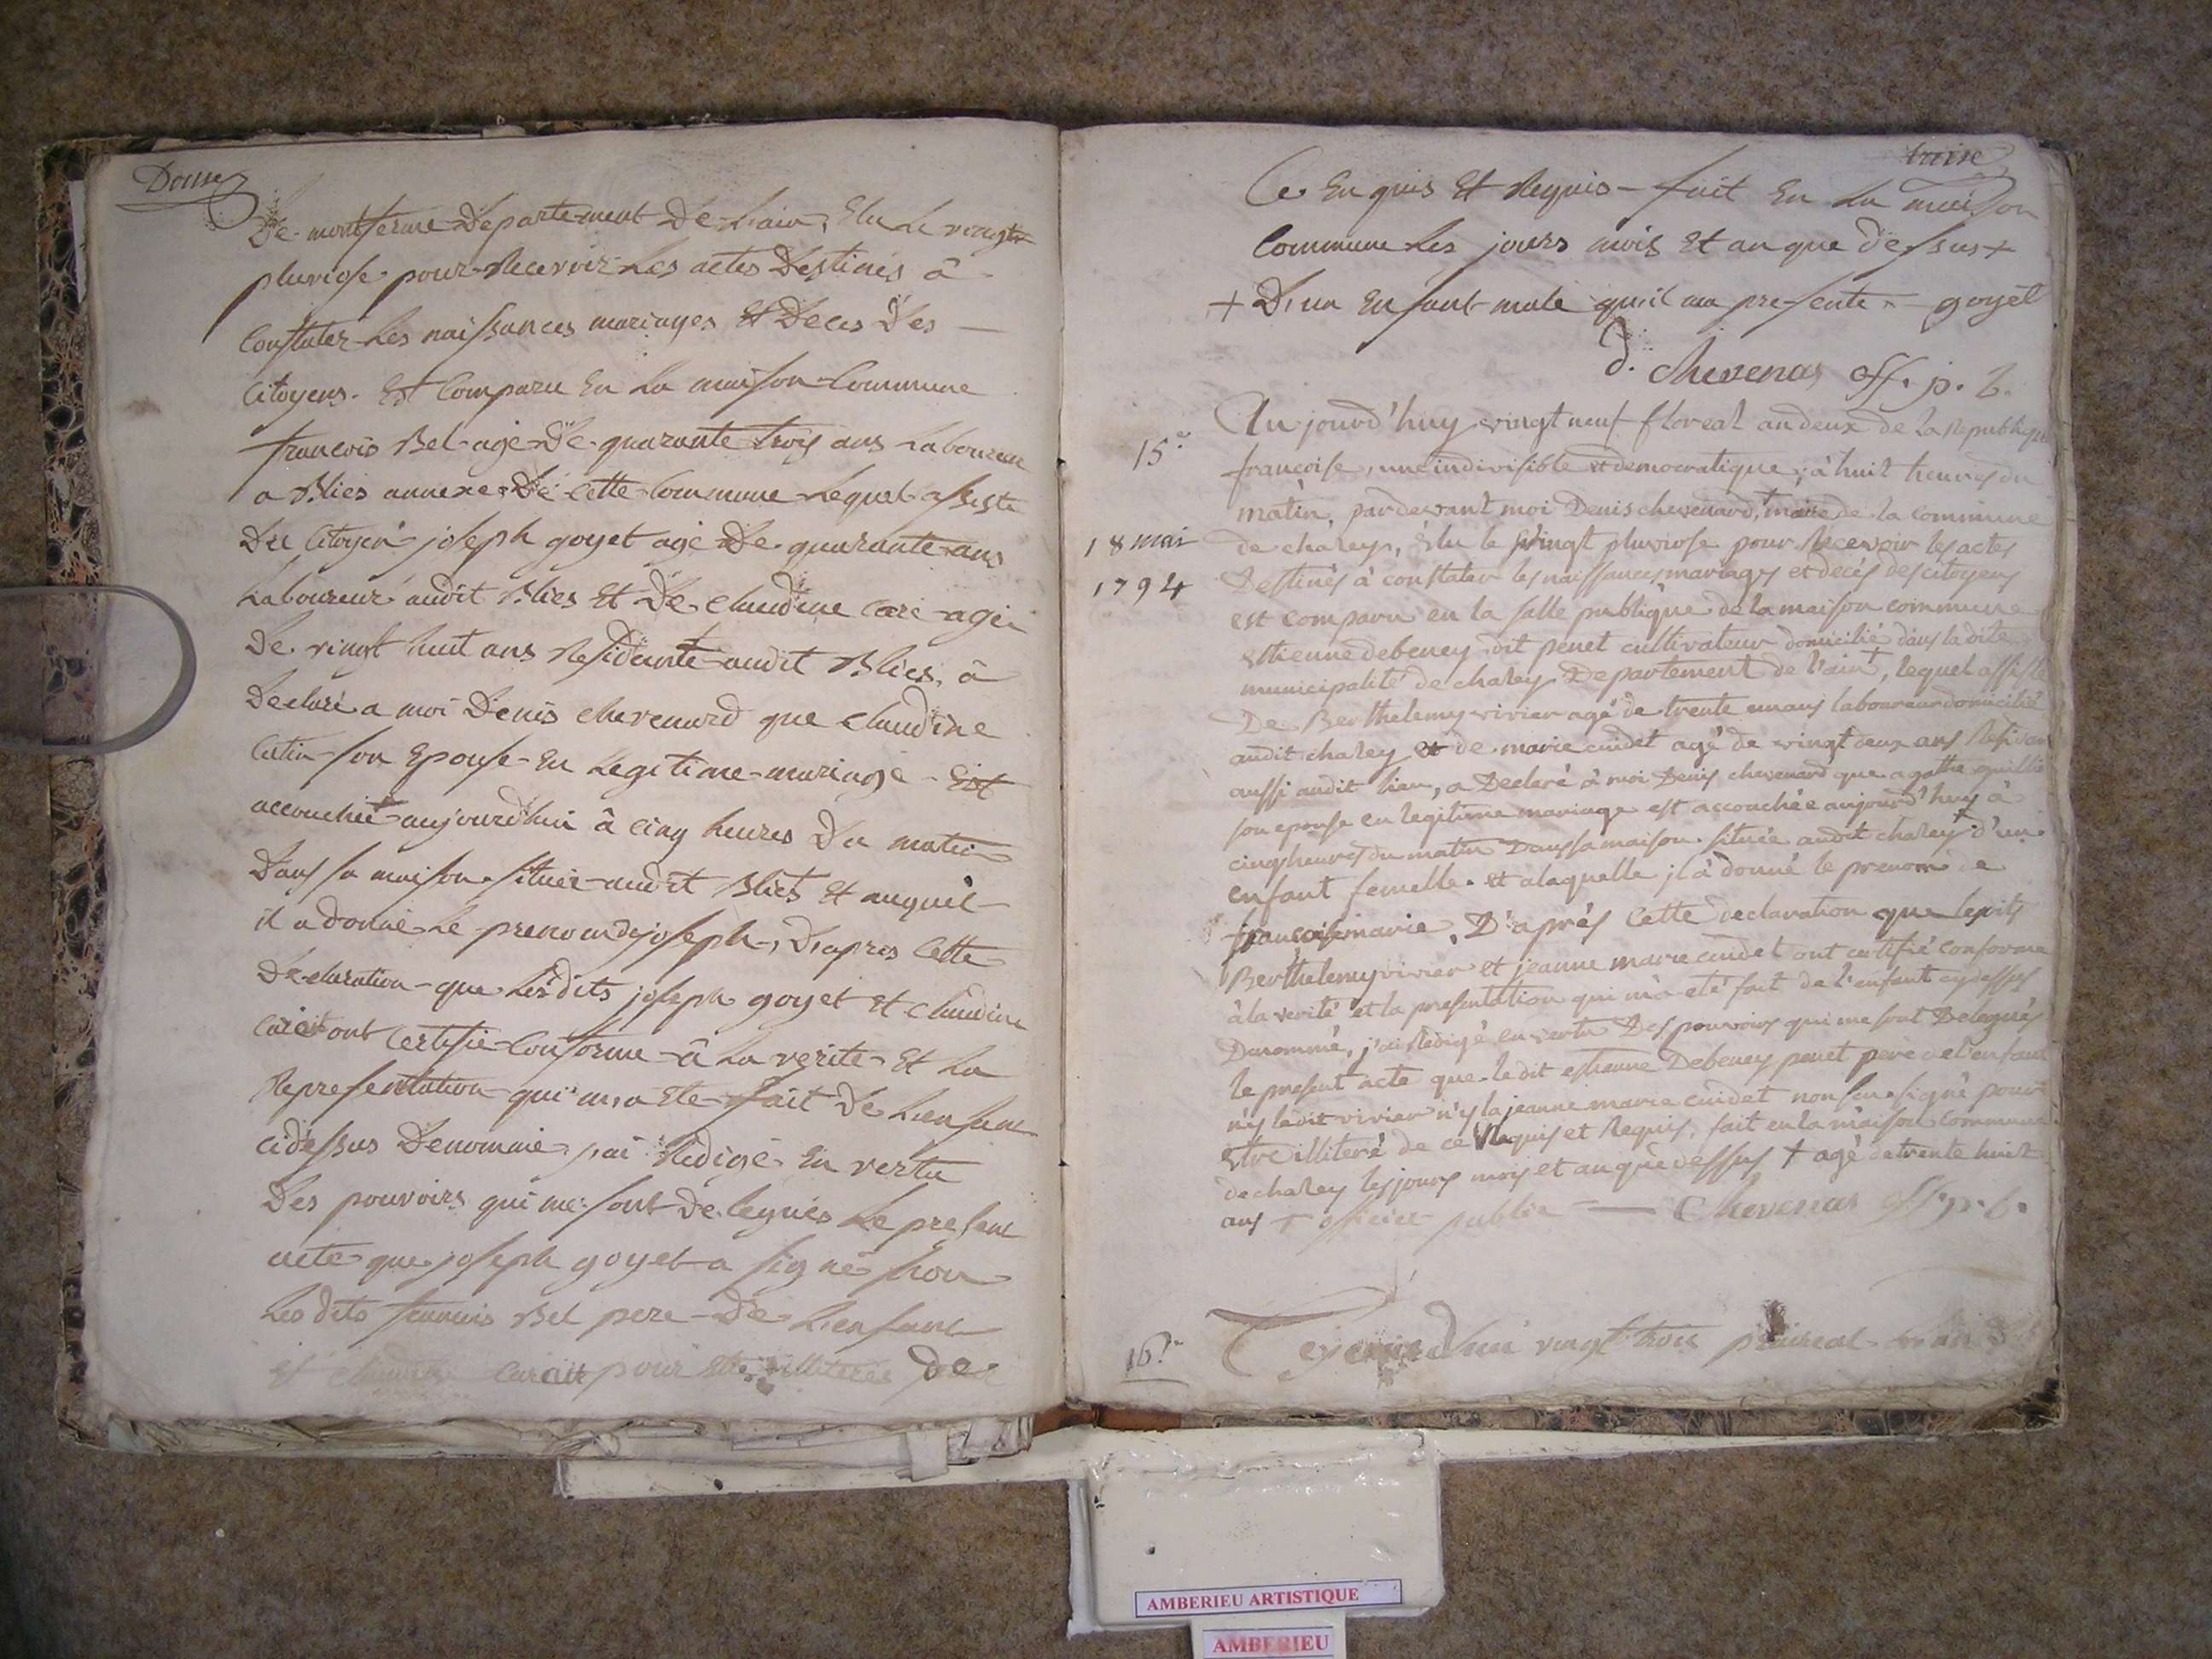 Douse
De montferme Departement De Lain, Elu Le vingt
pluviose pour Recevoir Les actes Destinés â
Constater Les naissances mariages Et Deces Des
Citoyens. Est Comparu En La maison Commune
francois Bel agé De quarante trois ans Laboureur
a Blies annexe De Cette Commune Lequel assisté
Du Citoyen joseph goyet agé De quarante ans
Laboureur audit Blies Et De Claudine agée
De vingt huit ans Residante audit Blies, â
Declaré a moi Denis chevenard que Claudine
son Epouse En Legitime mariage Est
accouchée aujourdhui â cinq heures Du matin
Dans sa maison située audit Blies Et auquel
il a donné Le prenom de joseph, D'apres Cette
Declaration que Lesdits joseph goyet Et Claudine
ont Certifié Conforme â La verité Et La
Representation qui m'a Eté fait De L'enfant
cidessus Denommé j'ai Redigé En vertu
Des pouvoirs qui me sont Delegués Le present
acte que joseph goyet a signé non
Les dits francois Bel pere De L'enfant
Et pour Etre illiterés De
traise
Ce Enquis Et Requis fait En La maison
Commune Les jours mois Et an que Dessus +
+ D'un Enfant male qu'il ma presenté goyet
d. chevenas off. p. b.
15e
Aujourd'huy vingt neuf floreal an deux de la Republique
françoise, une indivisible et democratique, à huit heures du
matin, pardevant moi Denis chevenard, maire de la commune
18 mai
de chaley, élu le vingt pluviose pour Recevoir les actes
1794
Destinés à constater les naissances mariages et decés des citoyens
est comparu en la salle publique de la maison commune
estienne debeney dit penet cultivateur domicilié dans ladite
municipalité de chaley Departement de l'ain +, lequel assisté
De Berthelemy vivier agé de trente un ans laboureur domicilié
audit chaley et de marie cuidet agé de vingt deux ans Residan
aussi audit lieu, a Declaré à moi Denis chevenard que agathe
son epouse en legitime mariage est accouchée aujourd'huy à
cinq heures du matin Dans sa maison située audit chaley d'un
enfant femelle. et alaquelle il à donné le prenom de
françoise marie, D'aprés Cette declaration que lesdits
Berthelemy vivier et jeanne marie cuidet ont certifié conforme
à la verité et la presentation qui m'a eté fait de l'enfant cydessus
Denommé, j'ai Redigé en vertu Des pouvoirs qui me sont Delegués
le present acte que ledit estienne Debeney penet pere de l'enfant
n'y ledit vivier n'y la jeanne marie cuidet non signé pour
estre illiteré de ce Requis et Requis, fait en la maison commune
de chaley les jours mois et an que dessus + agé de trente huit
ans + officier public — Chevenas off. p. b.
16e
vingt trois prairial
AMBERIEU ARTISTIQUE
AMBERIEU